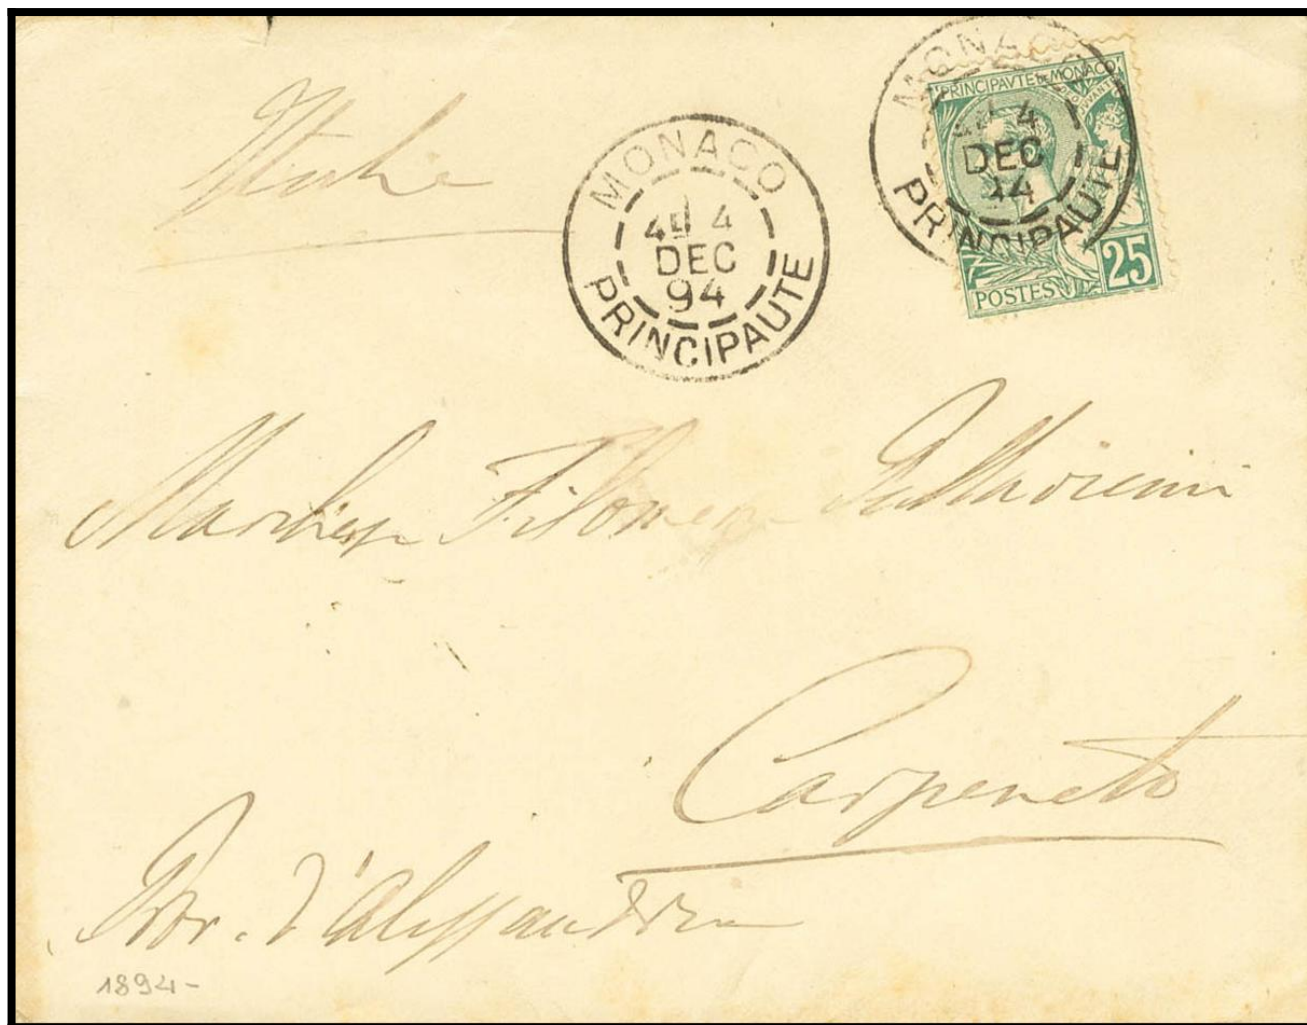 Italie
MONACO
4E 4
DEC
94
PRINCIPAUTE
MONACO
4
DEC
94
PRINCIPAUTE
PRINCIPAVTE DE MONACO
POSTES
25
Marchesa Filomena
Carpeneto
Prov. d'Alessandria
1894-